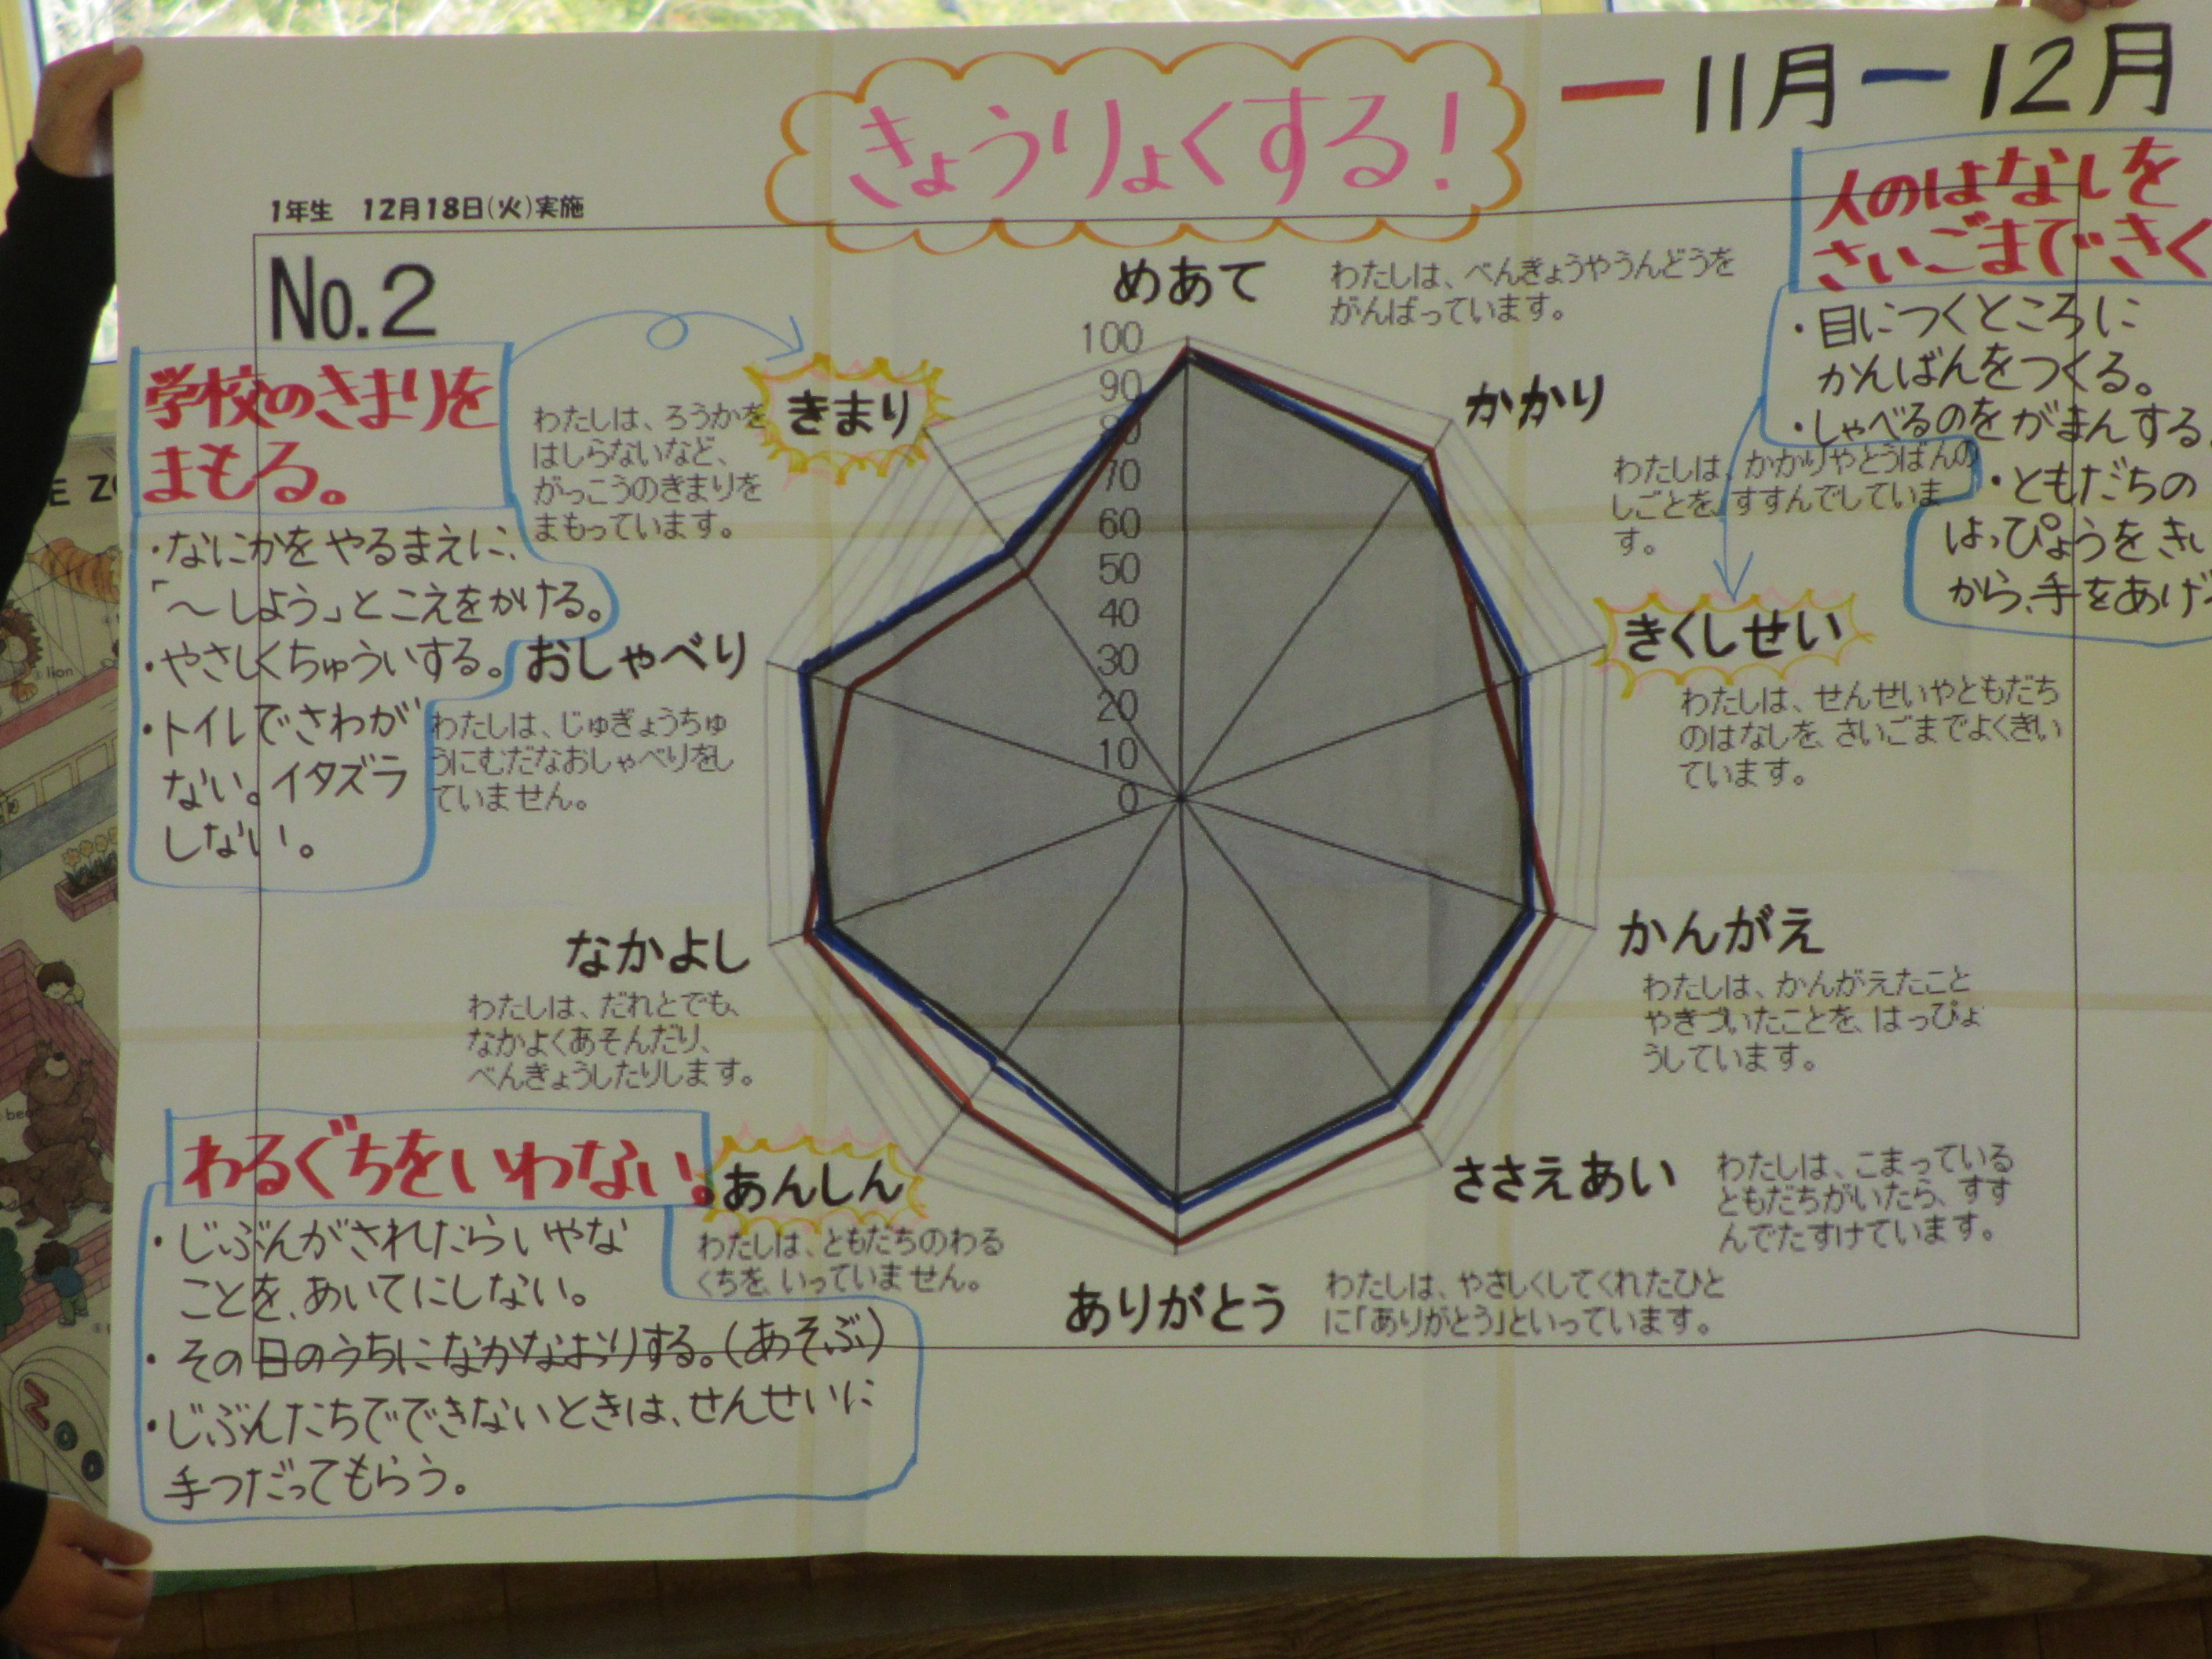 きょうりょくする!
ー11月ー12月
1年生 12月18日(火)実施
No.2
人のはなしを
さいごまできく
・目につくところに
かんばんをつくる。
・しゃべるのをがまんする
・ともだちの
はっぴょうをきい
から、手をあげ
学校のきまりを
まもる。
・なにかをやるまえに、
「～しよう」とこえをかける。
・やさしくちゅういする。
・トイレでさわが
ない。イタズラ
しない。
めあて
わたしは、べんきょうやうんどうを
がんばっています。
かかり
わたしは、かかりやとうばんの
しごとを、すすんでしていま
す。
きくしせい
わたしは、せんせいやともだち
のはなしを、さいごまでよくきい
ています。
かんがえ
わたしは、かんがえたこと
やきづいたことを、はっぴょ
うしています。
ささえあい
わたしは、こまっている
ともだちがいたら、すす
んでたすけています。
ありがとう
わたしは、やさしくしてくれたひと
に「ありがとう」といっています。
あんしん
わたしは、ともだちのわる
くちを、いっていません。
なかよし
わたしは、だれとでも、
なかよくあそんだり、
べんきょうしたりします。
おしゃべり
わたしは、じゅぎょうちゅ
うにむだなおしゃべりをし
ていません。
きまり
わたしは、ろうかを
はしらないなど、
がっこうのきまりを
まもっています。
100
90
80
70
60
50
40
30
20
10
0
わるぐちをいわない。
・じぶんがされたらいやな
ことを、あいてにしない。
・その日のうちになかなおりする。(あそぶ)
・じぶんたちでできないときは、せんせいに
手つだってもらう。
lion
bear